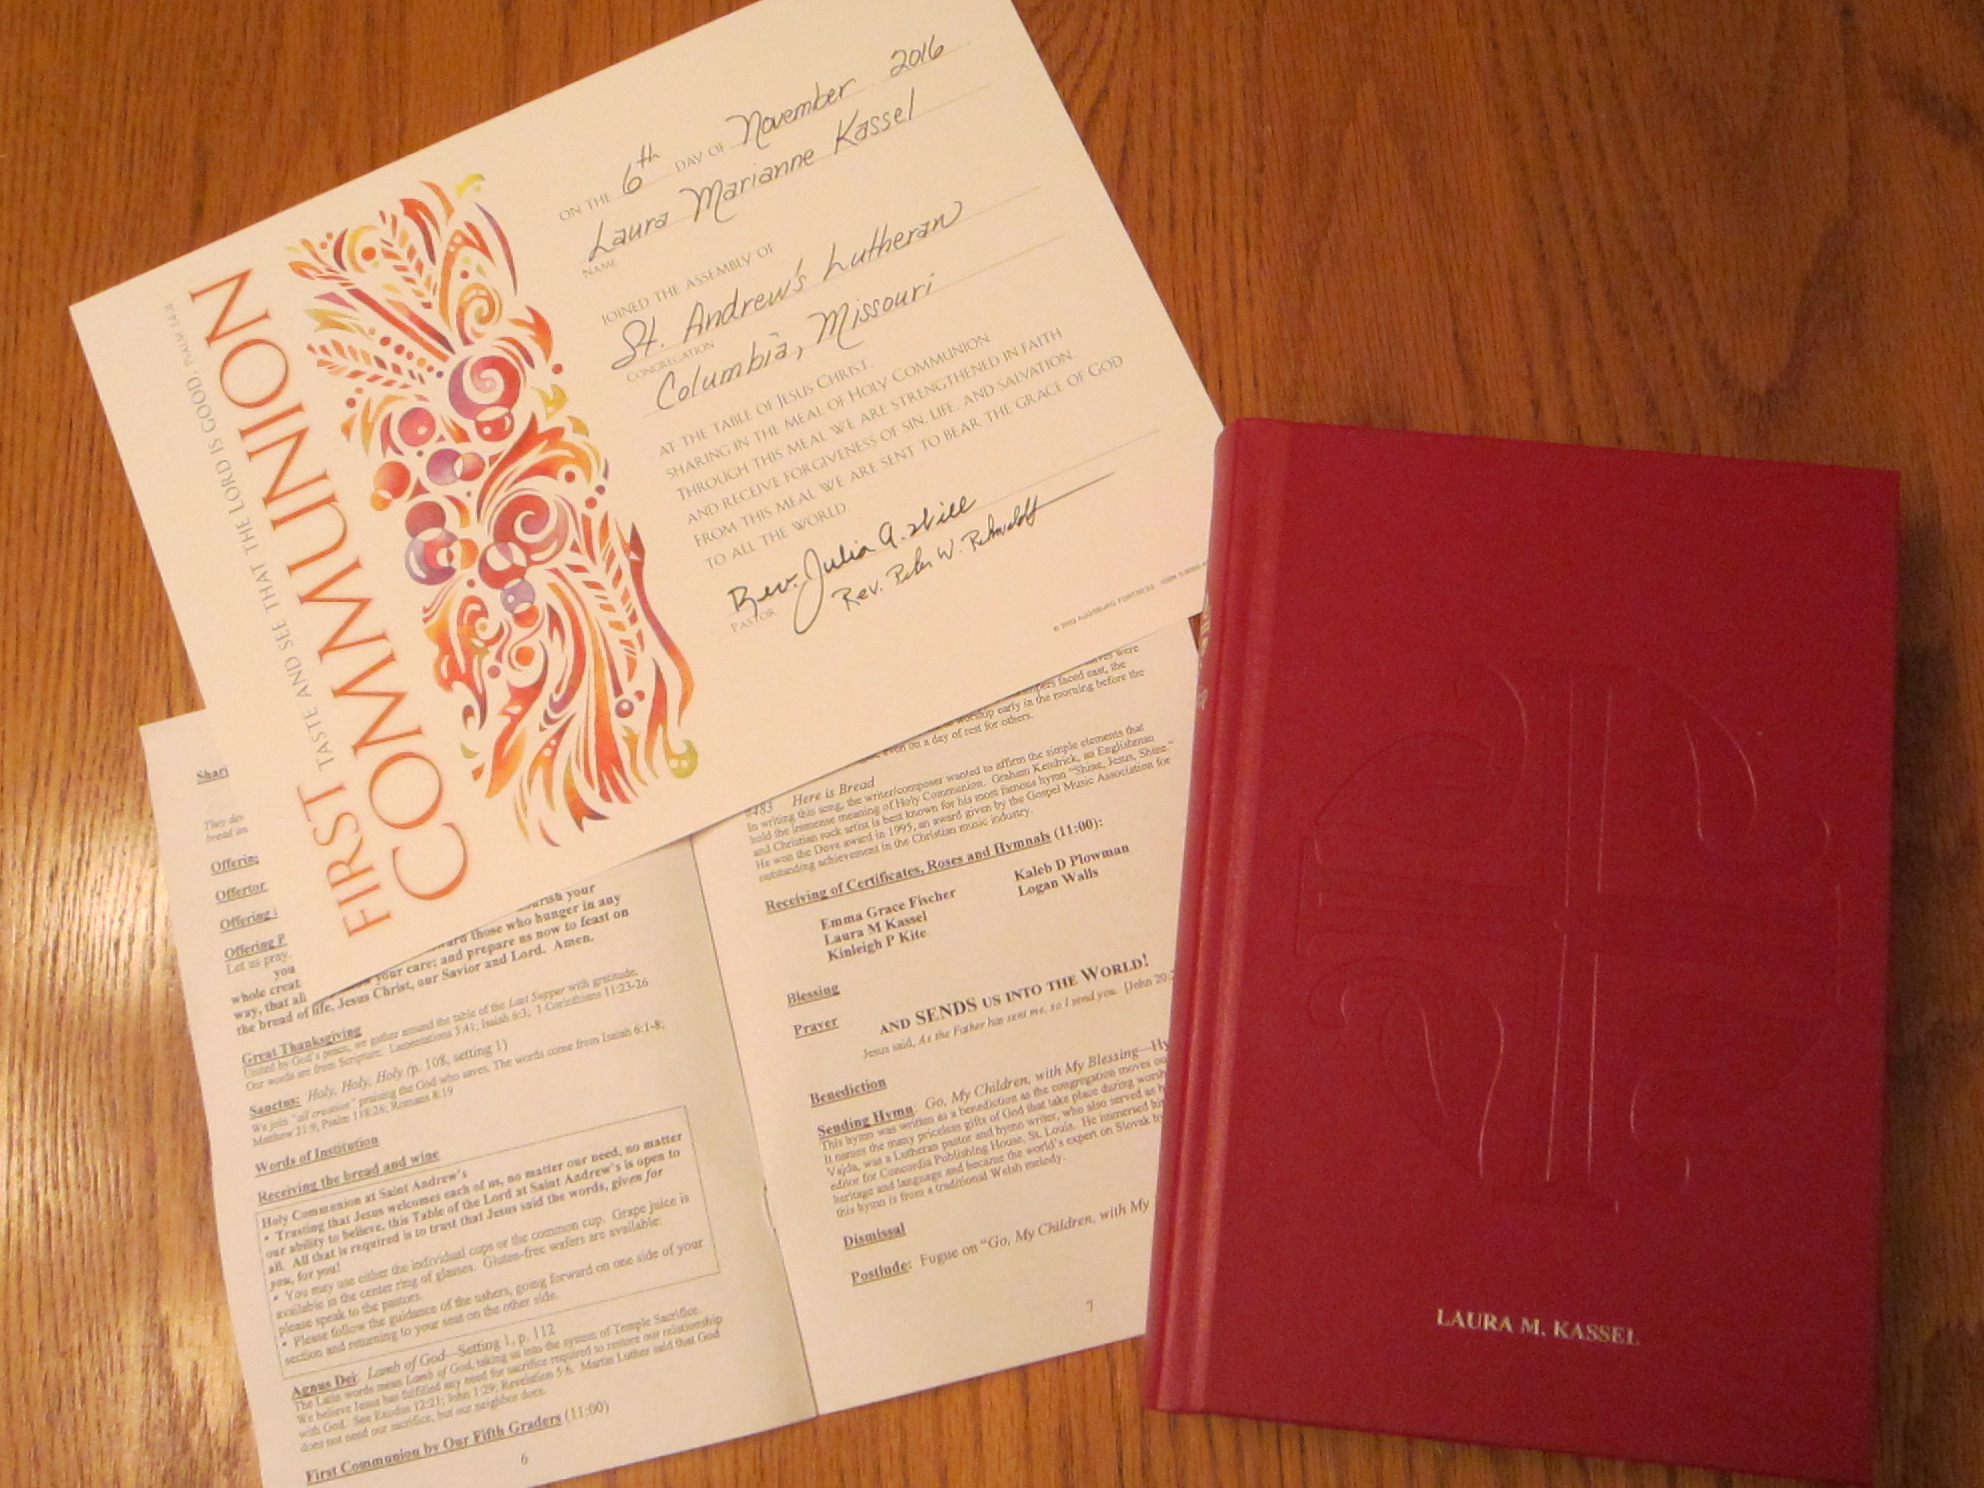 FIRST COMMUNION
TASTE AND SEE THAT THE LORD IS GOOD. PSALM 34:8
ON THE 6th DAY OF November 2016
Laura Marianne Kassel
NAME
JOINED THE ASSEMBLY OF
St. Andrew's Lutheran
CONGREGATION
Columbia, Missouri
AT THE TABLE OF JESUS CHRIST.
SHARING IN THE MEAL OF HOLY COMMUNION
THROUGH THIS MEAL WE ARE STRENGTHENED IN FAITH
AND RECEIVE FORGIVENESS OF SIN, LIFE, AND SALVATION.
FROM THIS MEAL WE ARE SENT TO BEAR THE GRACE OF GOD
TO ALL THE WORLD.
Rev. Julia A.
Rev. Peter W.
PASTOR
© 2003 AUGSBURG FORTRESS ISBN
Shari
They
bread
Offering
Offertor
Offering
Offering P
Let us pray.
you
whole creat
way, that all
your
those who hunger in any
your care; and prepare us now to feast on
the bread of life, Jesus Christ, our Savior and Lord. Amen.
Great Thanksgiving
United by God's peace, we gather around the table of the Last Supper with gratitude.
Our words are from Scripture: Lamentations 3:41; Isaiah 6:3; 1 Corinthians 11:23-26
Sanctus: Holy, Holy, Holy (p. 108, setting 1)
We join "all creation" praising the God who saves. The words come from Isaiah 6:1-8;
Matthew 21:9; Psalm 118:26; Romans 8:19
Words of Institution
Receiving the bread and wine
Holy Communion at Saint Andrew's
• Trusting that Jesus welcomes each of us, no matter our need, no matter
our ability to believe, this Table of the Lord at Saint Andrew's is open to
all. All that is required is to trust that Jesus said the words, given for
you, for you!
• You may use either the individual cups or the common cup. Grape juice is
available in the center ring of glasses. Gluten-free wafers are available:
please speak to the pastors.
• Please follow the guidance of the ushers, going forward on one side of your
section and returning to your seat on the other side.
Agnus Dei: Lamb of God—Setting 1, p. 112
The Latin words mean Lamb of God, taking us into the system of Temple Sacrifice.
We believe Jesus has fulfilled any need for sacrifice required to restore our relationship
with God. See Exodus 12:21; John 1:29; Revelation 5:6. Martin Luther said that God
does not need our sacrifice, but our neighbor does.
First Communion by Our Fifth Graders (11:00)
6
were
faced east, the
worship early in the morning before the
even on a day of rest for others.
#483 Here is Bread
In writing this song, the writer/composer wanted to affirm the simple elements that
hold the immense meaning of Holy Communion. Graham Kendrick, an Englishman
and Christian rock artist is best known for his most famous hymn "Shine, Jesus, Shine."
He won the Dove award in 1995, an award given by the Gospel Music Association for
outstanding achievement in the Christian music industry.
Receiving of Certificates, Roses and Hymnals (11:00):
Emma Grace Fischer
Laura M Kassel
Kinleigh P Kite
Kaleb D Plowman
Logan Walls
Blessing
Prayer
AND SENDS US INTO THE WORLD!
Jesus said, As the Father has sent me, so I send you. [John 20:2
Benediction
Sending Hymn: Go, My Children, with My Blessing—Hy
This hymn was written as a benediction as the congregation moves ou
It names the many priceless gifts of God that take place during worsh
Vajda, was a Lutheran pastor and hymn writer, who also served as b
editor for Concordia Publishing House, St. Louis. He immersed his
heritage and language and became the world's expert on Slovak hy
this hymn is from a traditional Welsh melody.
Dismissal
Postlude: Fugue on "Go, My Children, with My
7
LAURA M. KASSEL